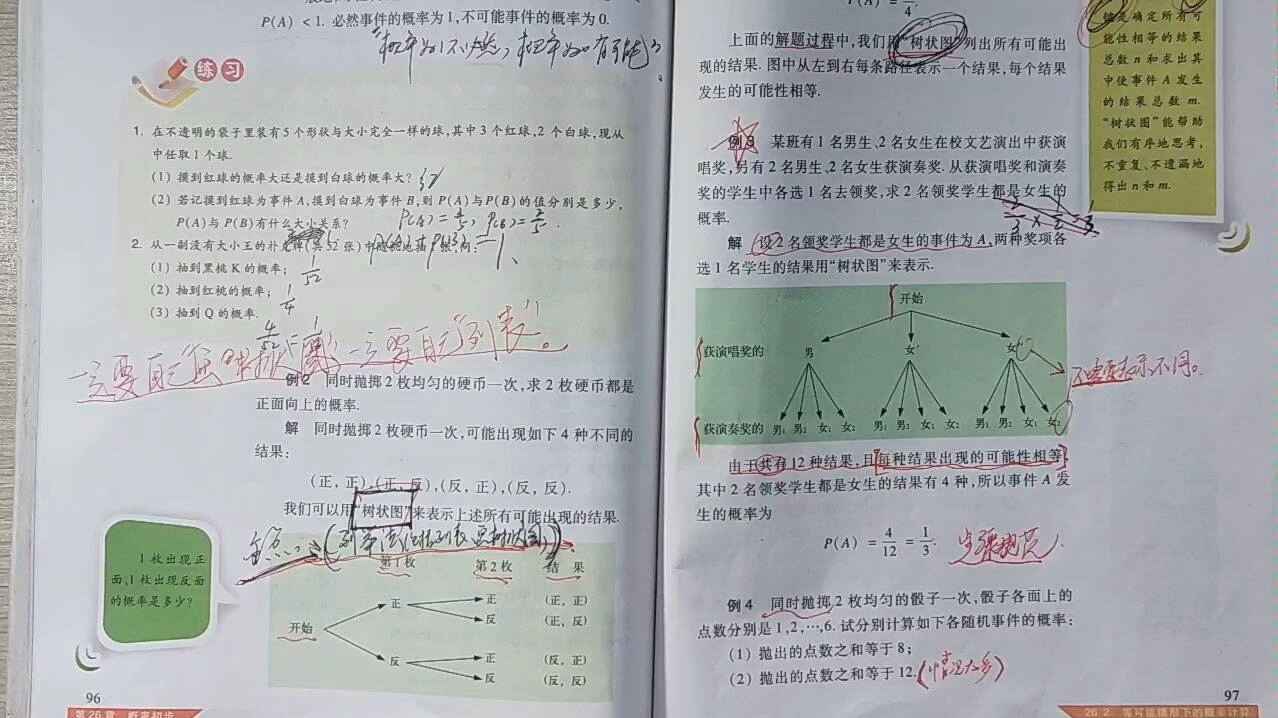 P(A) < 1. 必然事件的概率为 1,不可能事件的概率为 0.
练习
1. 在不透明的袋子里装有 5 个形状与大小完全一样的球,其中 3 个红球,2 个白球,现从
中任取 1 个球.
(1) 摸到红球的概率大还是摸到白球的概率大?
(2) 若记摸到红球为事件 A,摸到白球为事件 B,则 P(A) 与 P(B) 的值分别是多少,
P(A) 与 P(B) 有什么大小关系?
2. 从一副没有大小王的扑克牌(共 52 张)中
(1) 抽到黑桃 K 的概率; 1/52
(2) 抽到红桃的概率; 1/4
(3) 抽到 Q 的概率.
一定要自己
一定要自己“列表”。
例 2 同时抛掷 2 枚均匀的硬币一次,求 2 枚硬币都是
正面向上的概率.
解 同时抛掷 2 枚硬币一次,可能出现如下 4 种不同的
结果:
(正, 正),(正, 反),(反, 正),(反, 反).
我们可以用“树状图”来表示上述所有可能出现的结果.
1 枚出现正
面、1 枚出现反面
的概率是多少?
第 1 枚 第 2 枚 结 果
正 正 (正, 正)
反 (正, 反)
开始
反 正 (反, 正)
反 (反, 反)
96
第 26 章 概率初步
上面的解题过程中,我们用“树状图”列出所有可能出
现的结果. 图中从左到右每条路径表示一个结果,每个结果
发生的可能性相等.
键是确定所有可
能性相等的结果
总数 n 和求出其
中使事件 A 发生
的结果总数 m.
“树状图”能帮助
我们有序地思考,
不重复、不遗漏地
得出 n 和 m.
例 3 某班有 1 名男生、2 名女生在校文艺演出中获演
唱奖,另有 2 名男生、2 名女生获演奏奖. 从获演唱奖和演奏
奖的学生中各选 1 名去领奖,求 2 名领奖学生都是女生的
概率.
解 设 2 名领奖学生都是女生的事件为 A,两种奖项各
选 1 名学生的结果用“树状图”来表示.
开始
获演唱奖的 男 女′ 女″
获演奏奖的 男₁ 男₂ 女₁ 女₂ 男₁ 男₂ 女₁ 女₂ 男₁ 男₂ 女₁ 女₂
由于共有 12 种结果,且每种结果出现的可能性相等,
其中 2 名领奖学生都是女生的结果有 4 种,所以事件 A 发
生的概率为
P(A) = 4/12 = 1/3.
例 4 同时抛掷 2 枚均匀的骰子一次,骰子各面上的
点数分别是 1,2,⋯,6. 试分别计算如下各随机事件的概率:
(1) 抛出的点数之和等于 8;
(2) 抛出的点数之和等于 12.(情况太多)
97
26.2 等可能情形下的概率计算